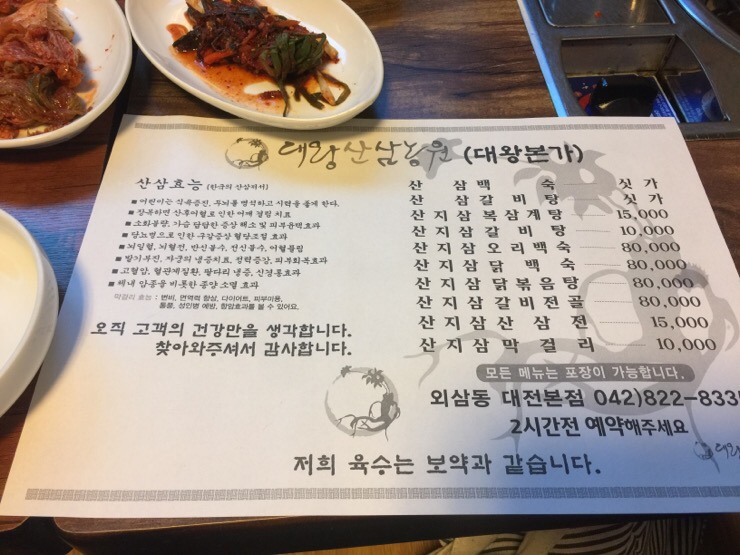 대왕산삼농원 (대왕본가)
산삼효능 (한국의 산삼에서)
■ 어린이는 식욕증진, 두뇌를 명석하고 시력을 좋게 한다.
■ 장복하면 산후어혈로 인한 어깨 결림 치료
■ 소화불량, 가슴 답답한 증상 해소 및 피부윤택효과
■ 당뇨병으로 인한 구갈증상 혈당조절 효과
■ 뇌일혈, 뇌혈전, 반신불수, 전신불수, 어혈풀림
■ 발기부진, 자궁의 냉증치료, 정력증강, 피부회복효과
■ 고혈압, 혈관계질환, 팔다리 냉증, 신경통효과
■ 체내 암종을 비롯한 종양 소멸 효과
막걸리 효능 : 변비, 면역력 향상, 다이어트, 피부미용,
통풍, 성인병 예방, 항암효과를 볼 수 있어요.
오직 고객의 건강만을 생각합니다.
찾아와주셔서 감사합니다.
산삼백숙 싯가
산삼갈비탕 싯가
산지삼복삼계탕 15,000
산지삼갈비탕 10,000
산지삼오리백숙 80,000
산지삼닭백숙 80,000
산지삼닭볶음탕 80,000
산지삼갈비전골 80,000
산지삼산삼전 15,000
산지삼막걸리 10,000
모든 메뉴는 포장이 가능합니다.
외삼동 대전본점 042)822-833
2시간전 예약해주세요
저희 육수는 보약과 같습니다.
대왕